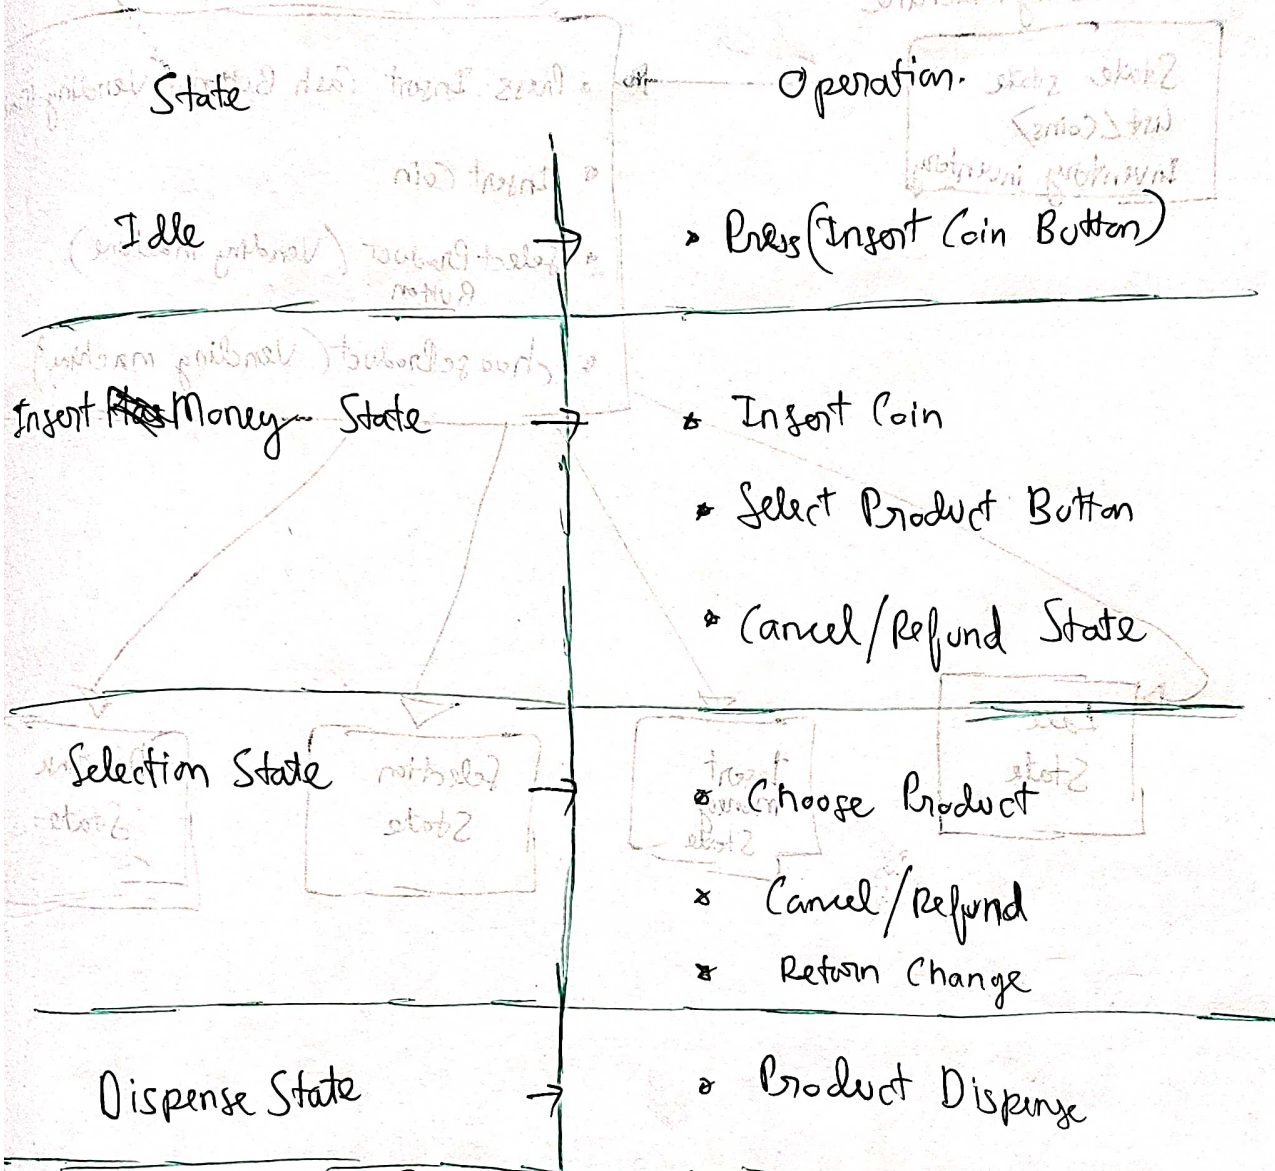 State Operation.
Idle → • Press (Insert Coin Button)
Insert Money State → * Insert Coin
* Select Product Button
* Cancel/Refund State
Selection State → * Choose Product
* Cancel/Refund
* Return Change
Dispense State → * Product Dispense